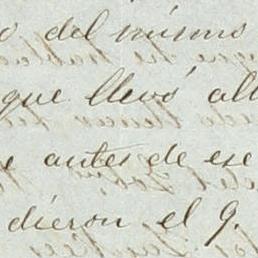 o del mismo
que llevó all
e antes de ese
dieron el 9.